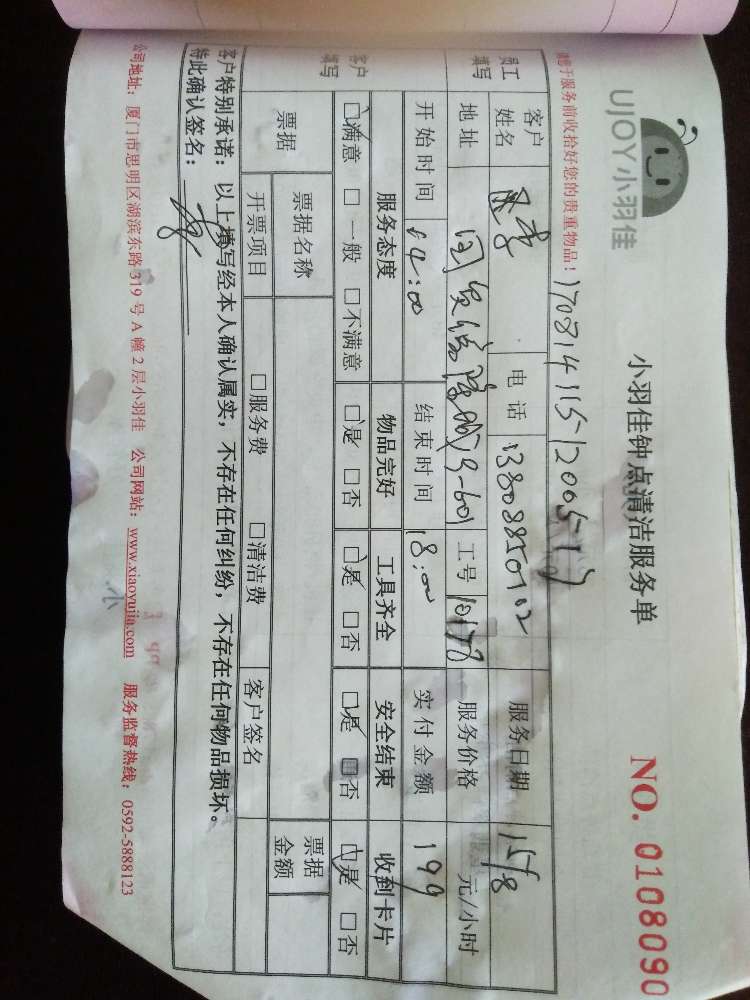 UJOY小羽佳
小羽佳钟点清洁服务单
NO. 0108090
请您于服务前收拾好您的贵重物品!
员工填写 客户姓名 电话 服务日期 15/8
地址 工号 10178 服务价格 元/小时
开始时间 14:00 结束时间 18:00 实付金额 199
客户填写 服务态度 物品完好 工具齐全 安全结束 收到卡片
□满意 □一般 □不满意 □是 □否 □是 □否 □是 □否 □是 □否
票据 票据名称 票据金额
开票项目 □服务费 □清洁费 客户签名
客户特别承诺:以上填写经本人确认属实,不存在任何纠纷,不存在任何物品损坏。
特此确认签名:
公司地址:厦门市思明区湖滨东路319号A幢2层小羽佳 公司网站:www.xiaoyujia.com 服务监督热线:0592-5888123